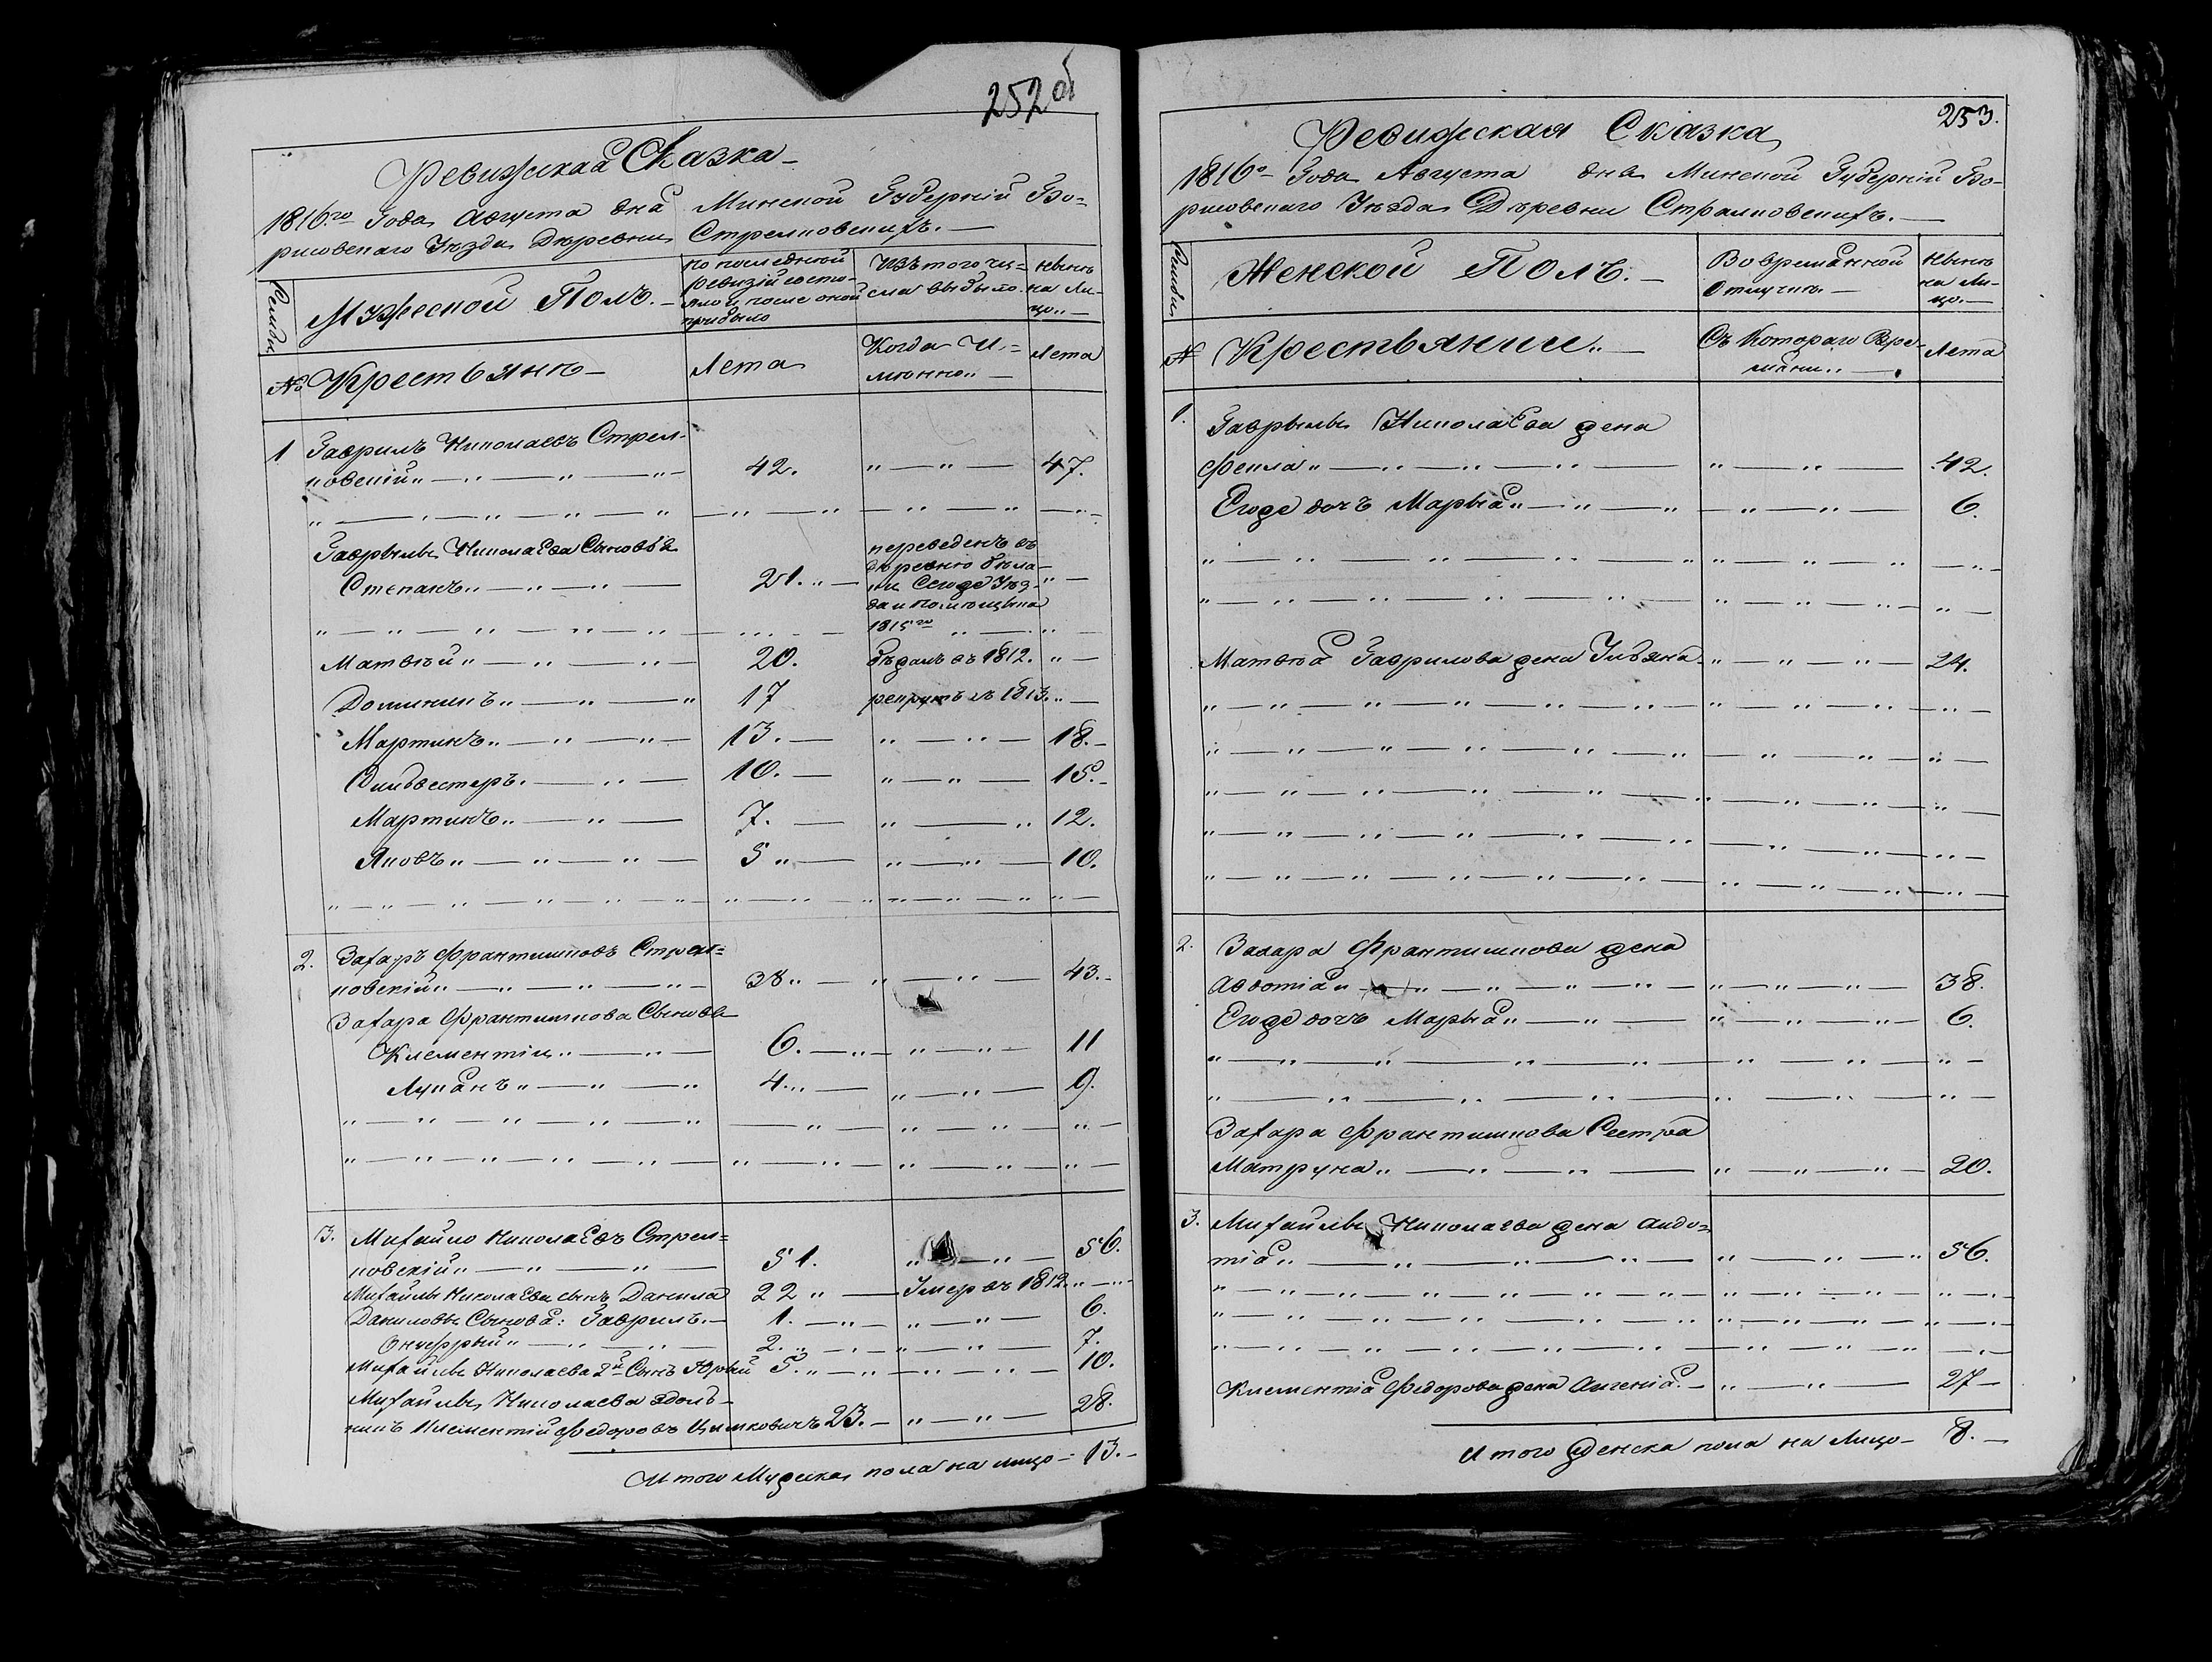 252 об
Ревижская Сказка
1816го Года Августа дня Минской Губерніи Бо=
рисовскаго Уезда Деревни Стрелковскихъ.
Семьи
Мужеской Полъ.
По последней
ревизіи состо-
яло и после оной
прибыло
Изъ того чи=
сла выбыло
Ныне
на Ли-
цо
№ Крестьяне
Лета
Когда И=
мянно
Лета
1 Гаврилъ Николаевъ Стрел-
ковскій 42. 47.
Гаврылы Николаева Сыновья
Степанъ 21. переведенъ въ
деревню
Сегоже Уез-
да и помещика
1815го
Матвей 20. бежалъ въ 1812.
Доминикъ 17 рекрутъ въ 1813.
Мартинъ 13. 18.
Сильвестеръ 10. 15.
Мартинъ 7. 12.
Яковъ 5 10.
2. Захаръ Франтишковъ Стрел=
ковскій 38 43.
Захара Франтишкова Сыновья
Клементіи 6. 11
Лукянъ 4. 9.
3. Михайло Николаевъ Стрел=
ковскій 51. 56.
Михайлы Николаева сынъ Данила 22 Умеръ въ 1812.
Даниловы Сыновя: Гаврилъ 1. 6.
Онуфрый 2. 7.
Михайлы Николаева 2й Сынъ Юрый 5. 10.
Михайлы Николаева здоль-
никъ Клементій Федоровъ 23. 28.
Итого Мужска пола на лицо 13.
253.
Ревижская Сказка
1816о Года Августа дня Минской Губерніи Бо-
рисовскаго Уезда Деревни Стралковскихъ.
Семьи
Женской Полъ.
Во временной
Отлучке
Ныне
на Ли-
цо
№ Крестьянии
Съ Котораго Вре-
мяни
Лета
1. Гаврылы Николаева жена
Фекла 42.
Егоже дочъ Марыя 6.
Матвея Гаврилова жена Ульяна 24.
2. Захара Франтишкова жена
Авдотія 38.
Егоже дочъ Марыя 6.
Захара Франтишкова Сестра
Матруна 20.
3. Михайлы Николаева жена Авдо=
тія 56.
Клементія Федорова жена 27
Итого Женска пола на Лицо 8.